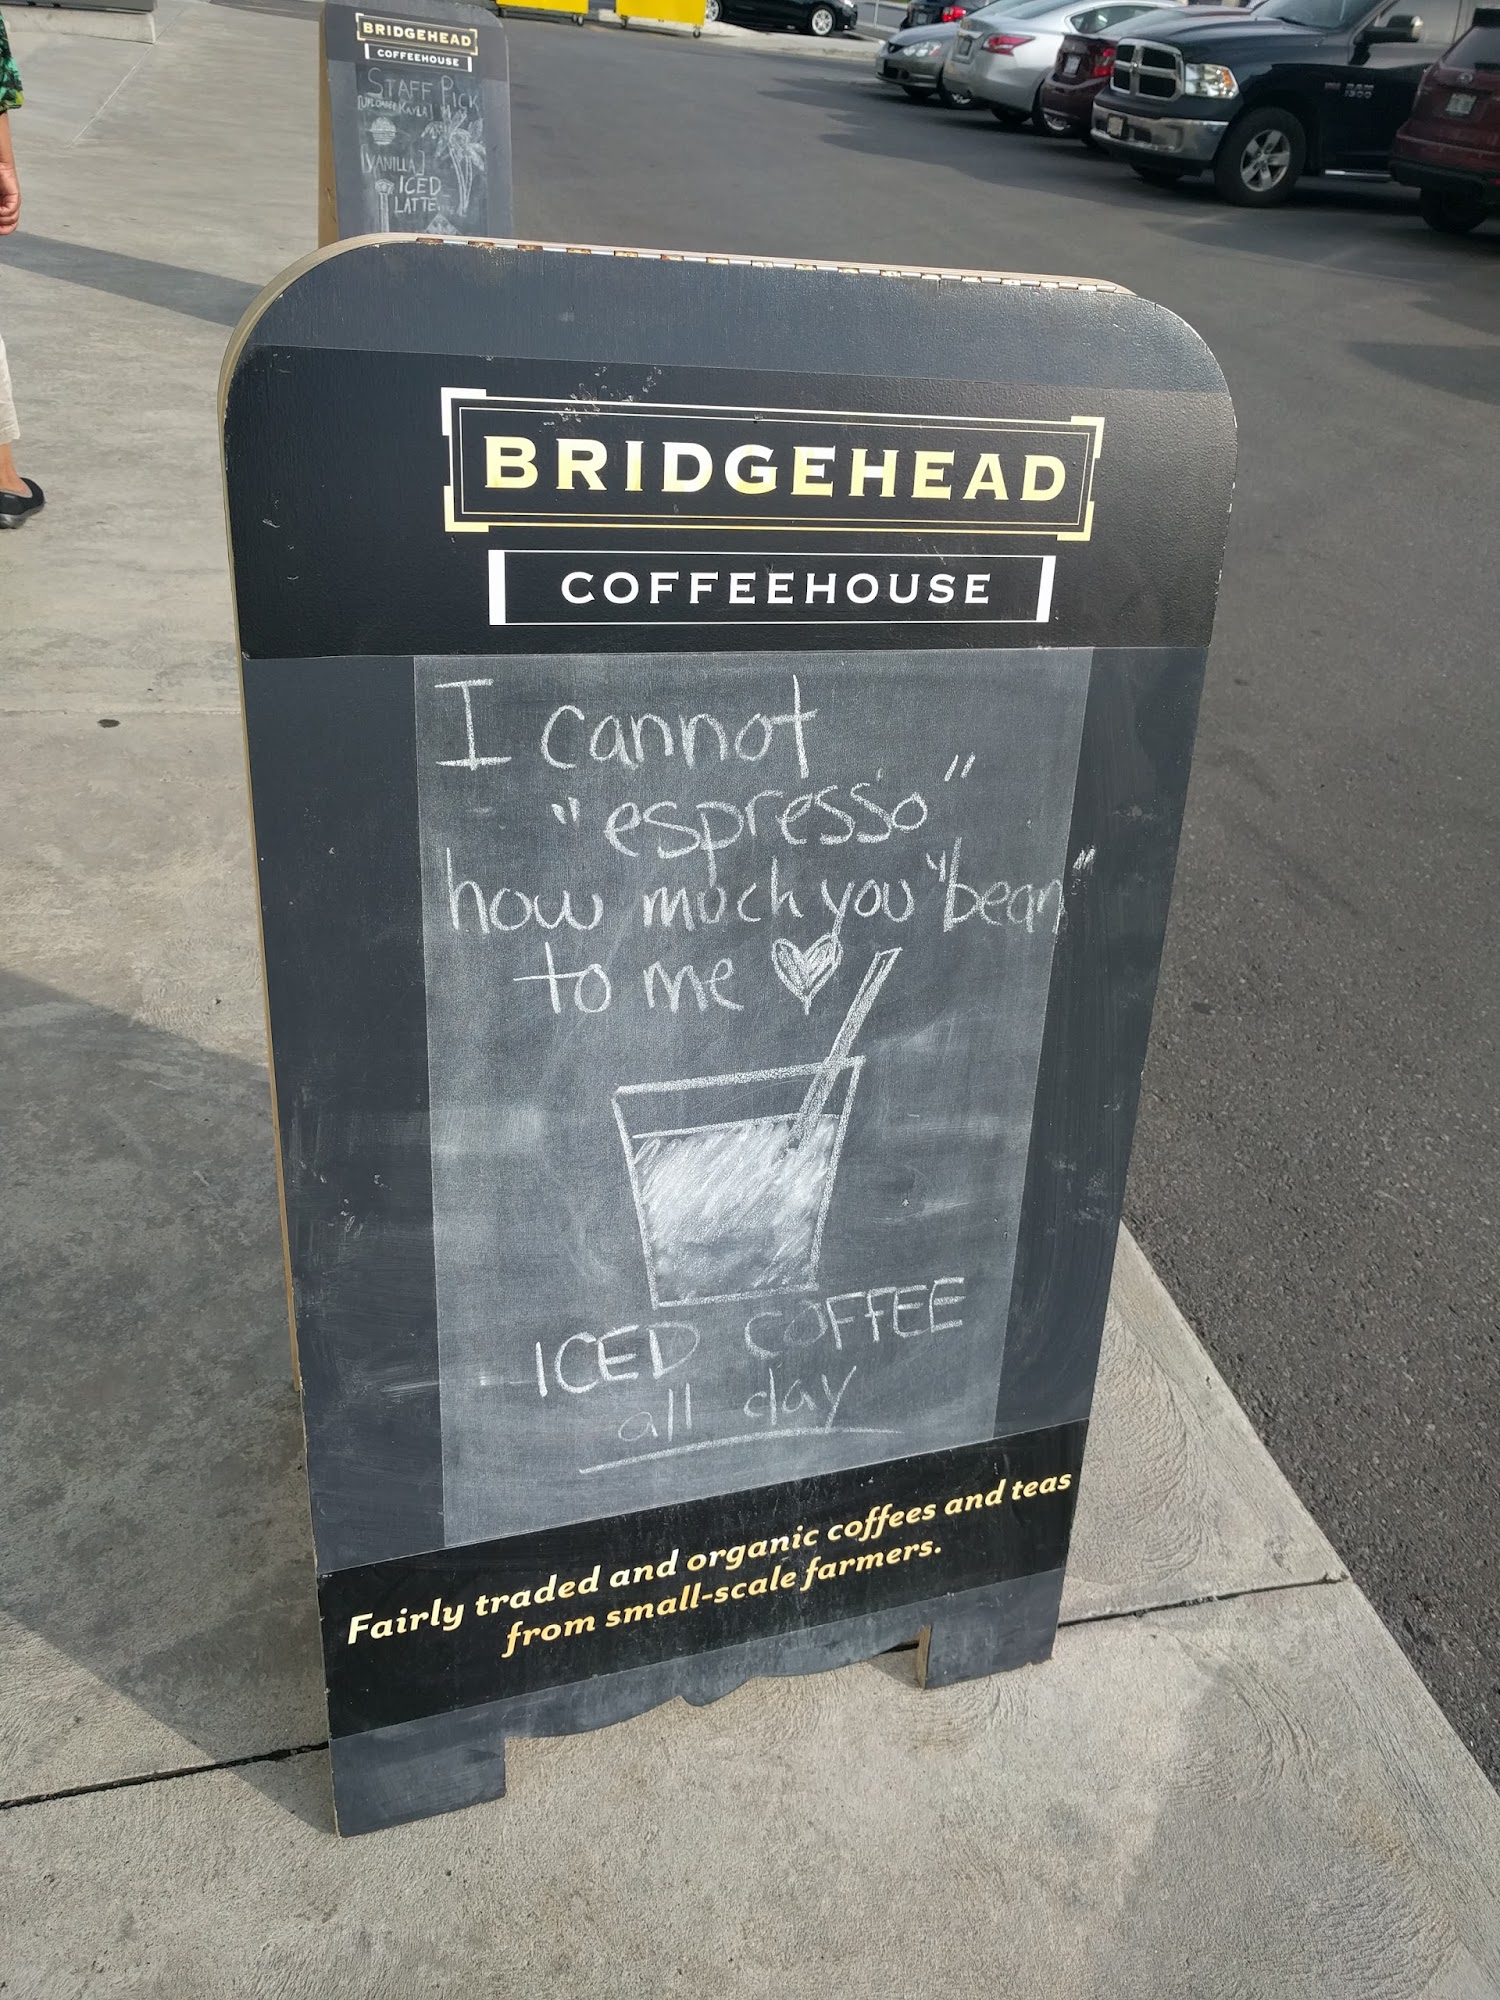 BRIDGEHEAD
COFFEEHOUSE
STAFF PICK
VANILLA]
ICED
LATTE
BRIDGEHEAD
COFFEEHOUSE
I cannot
"espresso"
how much you "bean"
to me
ICED COFFEE
all day
Fairly traded and organic coffees and teas
from small-scale farmers.
RAM
1500